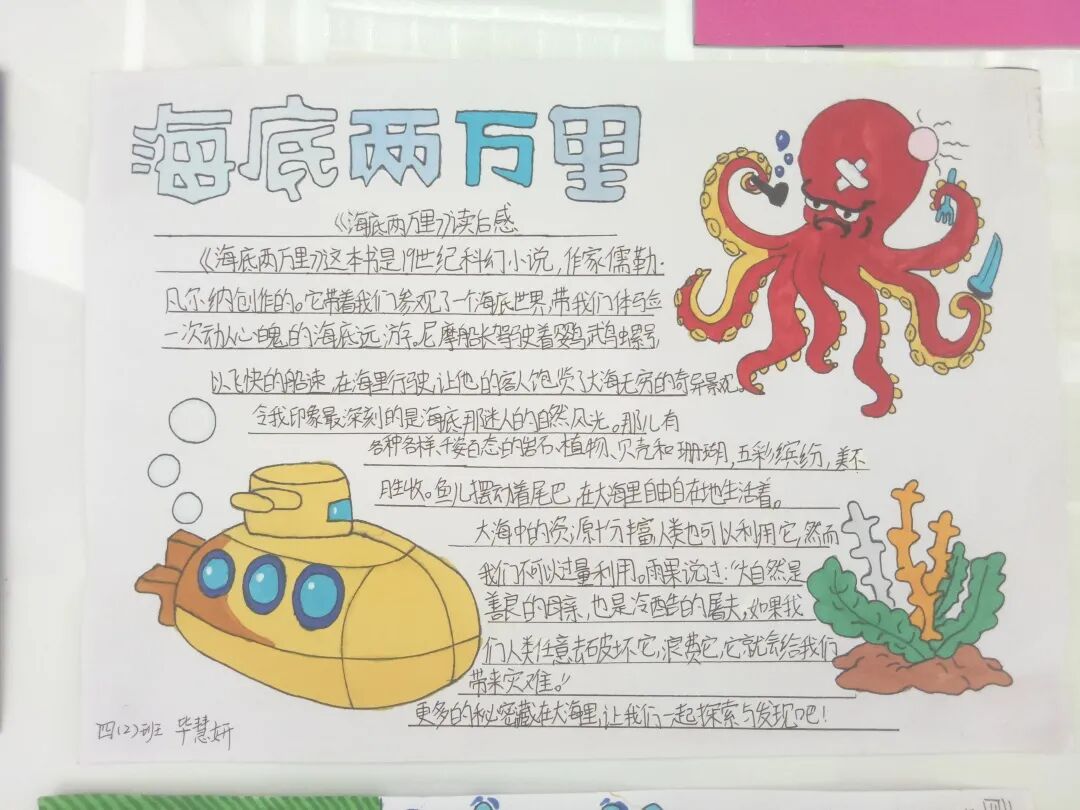 海底两万里
《海底两万里》读后感
《海底两万里》这本书是19世纪科幻小说，作家儒勒·
凡尔纳创作的。它带着我们参观了一个海底世界，带我们体验
一次动人心魄的海底远游。尼摩船长驾驶着鹦鹉螺号
以飞快的船速，在海里行驶，让他的客人饱览了大海无穷的奇异景观。
令我印象最深刻的是海底那迷人的自然风光。那儿有
各种各样、千姿百态的岩石、植物、贝壳和珊瑚，五彩缤纷，美不
胜收。鱼儿摆动着尾巴，在大海里自由自在地生活着。
大海中的资源十分丰富人类也可以利用它，然而
我们不可以过量利用。雨果说过：“大自然是
善良的母亲，也是冷酷的屠夫，如果我
们人类任意去破坏它，浪费它，它就会给我们
带来灾难。”
更多的秘密藏在大海里，让我们一起探索与发现吧！
四(2)班 毕慧妍